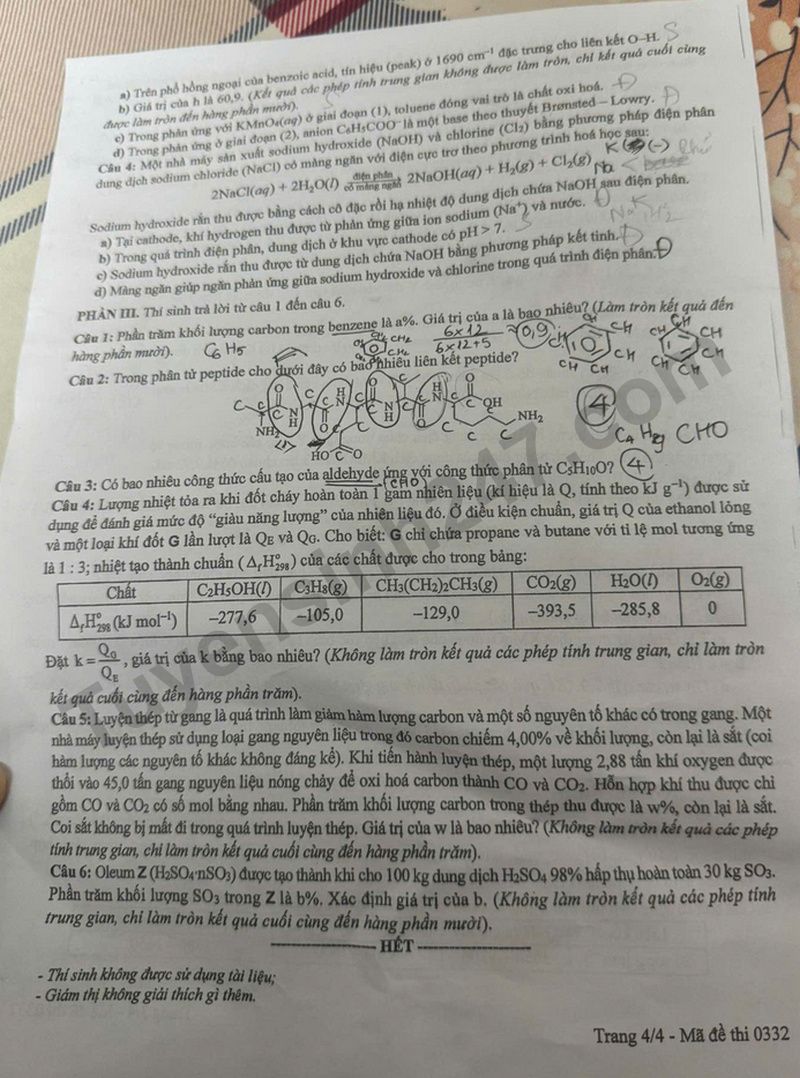 a) Trên phổ hồng ngoại của benzoic acid, tín hiệu (peak) ở 1690 cm⁻¹ đặc trưng cho liên kết O–H. S
b) Giá trị của h là 60,9. (Kết quả các phép tính trung gian không được làm tròn, chỉ kết quả cuối cùng
được làm tròn đến hàng phần mười).
c) Trong phản ứng với KMnO₄(aq) ở giai đoạn (1), toluene đóng vai trò là chất oxi hoá. Đ
d) Trong phản ứng ở giai đoạn (2), anion C₆H₅COO⁻ là một base theo thuyết Brønsted – Lowry. Đ
Câu 4: Một nhà máy sản xuất sodium hydroxide (NaOH) và chlorine (Cl₂) bằng phương pháp điện phân
dung dịch sodium chloride (NaCl) có màng ngăn với điện cực trơ theo phương trình hoá học sau:
2NaCl(aq) + 2H₂O(l) điện phân có màng ngăn 2NaOH(aq) + H₂(g) + Cl₂(g)
Sodium hydroxide rắn thu được bằng cách cô đặc rồi hạ nhiệt độ dung dịch chứa NaOH sau điện phân.
a) Tại cathode, khí hydrogen thu được từ phản ứng giữa ion sodium (Na⁺) và nước.
b) Trong quá trình điện phân, dung dịch ở khu vực cathode có pH > 7. S
c) Sodium hydroxide rắn thu được từ dung dịch chứa NaOH bằng phương pháp kết tinh. Đ
d) Màng ngăn giúp ngăn phản ứng giữa sodium hydroxide và chlorine trong quá trình điện phân. Đ
PHẦN III. Thí sinh trả lời từ câu 1 đến câu 6.
Câu 1: Phần trăm khối lượng carbon trong benzene là a%. Giá trị của a là bao nhiêu? (Làm tròn kết quả đến
hàng phần mười). C₆H₅ 6x12 / 6x12+5 ≈ 0,9
Câu 2: Trong phân tử peptide cho dưới đây có bao nhiêu liên kết peptide?
NH₂ HO O OH NH₂ 4
C₄H₉ CHO
Câu 3: Có bao nhiêu công thức cấu tạo của aldehyde ứng với công thức phân tử C₅H₁₀O? 4
CHO
Câu 4: Lượng nhiệt tỏa ra khi đốt cháy hoàn toàn 1 gam nhiên liệu (kí hiệu là Q, tính theo kJ g⁻¹) được sử
dụng để đánh giá mức độ “giàu năng lượng” của nhiên liệu đó. Ở điều kiện chuẩn, giá trị Q của ethanol lỏng
và một loại khí đốt G lần lượt là Q_E và Q_G. Cho biết: G chỉ chứa propane và butane với tỉ lệ mol tương ứng
là 1 : 3; nhiệt tạo thành chuẩn (Δ_fH°₂₉₈) của các chất được cho trong bảng:
Chất C₂H₅OH(l) C₃H₈(g) CH₃(CH₂)₂CH₃(g) CO₂(g) H₂O(l) O₂(g)
Δ_fH°₂₉₈ (kJ mol⁻¹) –277,6 –105,0 –129,0 –393,5 –285,8 0
Đặt k = Q_G/Q_E, giá trị của k bằng bao nhiêu? (Không làm tròn kết quả các phép tính trung gian, chỉ làm tròn
kết quả cuối cùng đến hàng phần trăm).
Câu 5: Luyện thép từ gang là quá trình làm giảm hàm lượng carbon và một số nguyên tố khác có trong gang. Một
nhà máy luyện thép sử dụng loại gang nguyên liệu trong đó carbon chiếm 4,00% về khối lượng, còn lại là sắt (coi
hàm lượng các nguyên tố khác không đáng kể). Khi tiến hành luyện thép, một lượng 2,88 tấn khí oxygen được
thổi vào 45,0 tấn gang nguyên liệu nóng chảy để oxi hoá carbon thành CO và CO₂. Hỗn hợp khí thu được chỉ
gồm CO và CO₂ có số mol bằng nhau. Phần trăm khối lượng carbon trong thép thu được là w%, còn lại là sắt.
Coi sắt không bị mất đi trong quá trình luyện thép. Giá trị của w là bao nhiêu? (Không làm tròn kết quả các phép
tính trung gian, chỉ làm tròn kết quả cuối cùng đến hàng phần trăm).
Câu 6: Oleum Z (H₂SO₄·nSO₃) được tạo thành khi cho 100 kg dung dịch H₂SO₄ 98% hấp thụ hoàn toàn 30 kg SO₃.
Phần trăm khối lượng SO₃ trong Z là b%. Xác định giá trị của b. (Không làm tròn kết quả các phép tính
trung gian, chỉ làm tròn kết quả cuối cùng đến hàng phần mười).
HẾT
- Thí sinh không được sử dụng tài liệu;
- Giám thị không giải thích gì thêm.
Trang 4/4 - Mã đề thi 0332
Tuyensinh247.com